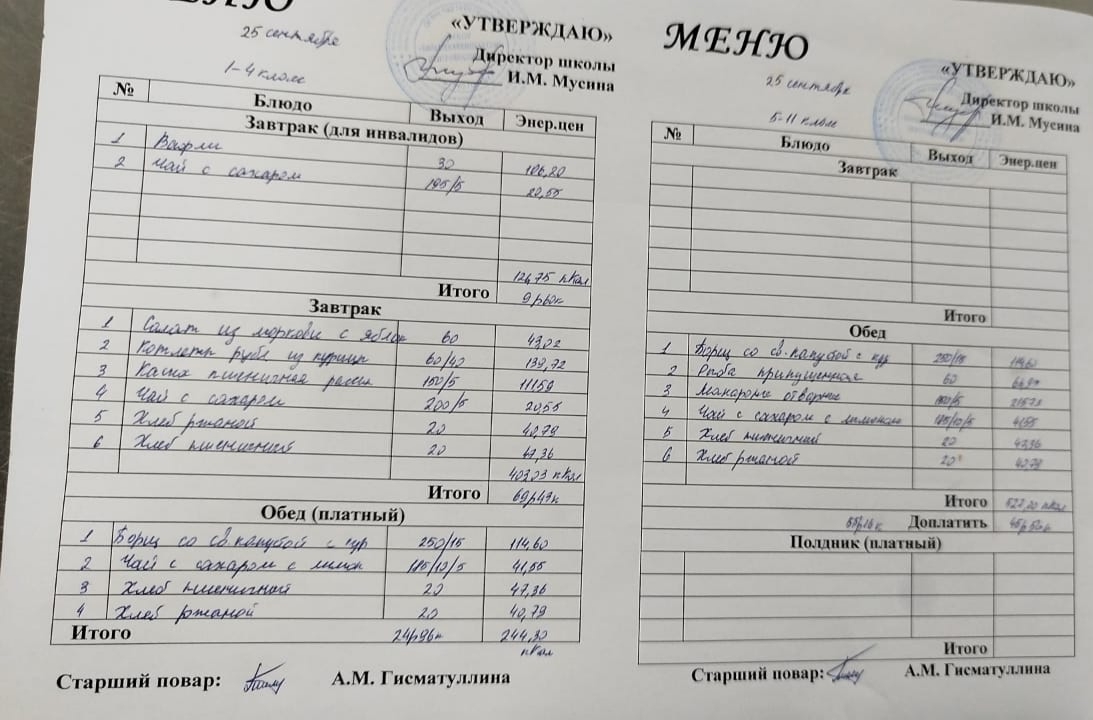 МЕНЮ
25 сентября
«УТВЕРЖДАЮ»
Директор школы
И.М. Мусина
1-4 класс
№ Блюдо Выход Энер.цен
Завтрак (для инвалидов)
1 Вафли 30 106,20
2 Чай с сахаром 195/5 20,55
126,75 кКал
Итого 9р60к
Завтрак
1 Салат из моркови с яблок 60 43,02
2 Котлеты рубл из курицы 60/40 139,72
3 Каша пшеничная рассып 150/5 111,59
4 Чай с сахаром 200/5 20,55
5 Хлеб ржаной 20 40,79
6 Хлеб пшеничный 20 47,36
403,03 кКал
Итого 69р49к
Обед (платный)
1 Борщ со св.капустой с кур 250/15 114,60
2 Чай с сахаром с лимон 185/10/5 41,55
3 Хлеб пшеничный 20 47,36
4 Хлеб ржаной 20 40,79
Итого 24р96к 244,30
кКал
Старший повар: А.М. Гисматуллина
МЕНЮ
25 сентября
«УТВЕРЖДАЮ»
Директор школы
И.М. Мусина
5-11 класс
№ Блюдо Выход Энер.цен
Завтрак
Итого
Обед
1 Борщ со св.капустой с кур 250/15 114,60
2 Рыба припущенная 60
3 Макароны отварные
4 Чай с сахаром с лимоном 185/10/5 41,55
5 Хлеб пшеничный 20 47,36
6 Хлеб ржаной 20 40,79
Итого кКал
Доплатить
Полдник (платный)
Итого
Старший повар: А.М. Гисматуллина